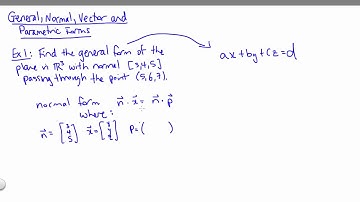 General, Normal, Vector and
Parametric Forms
Ex1: Find the general form of the
plane in ℝ³ with normal [3,4,5]
passing through the point (5,6,7).
ax+by+cz=d
normal form n⃗ · x⃗ = n⃗ · p⃗
where:
n⃗ = [3 4 5] x⃗ = [x y z] p = ( )